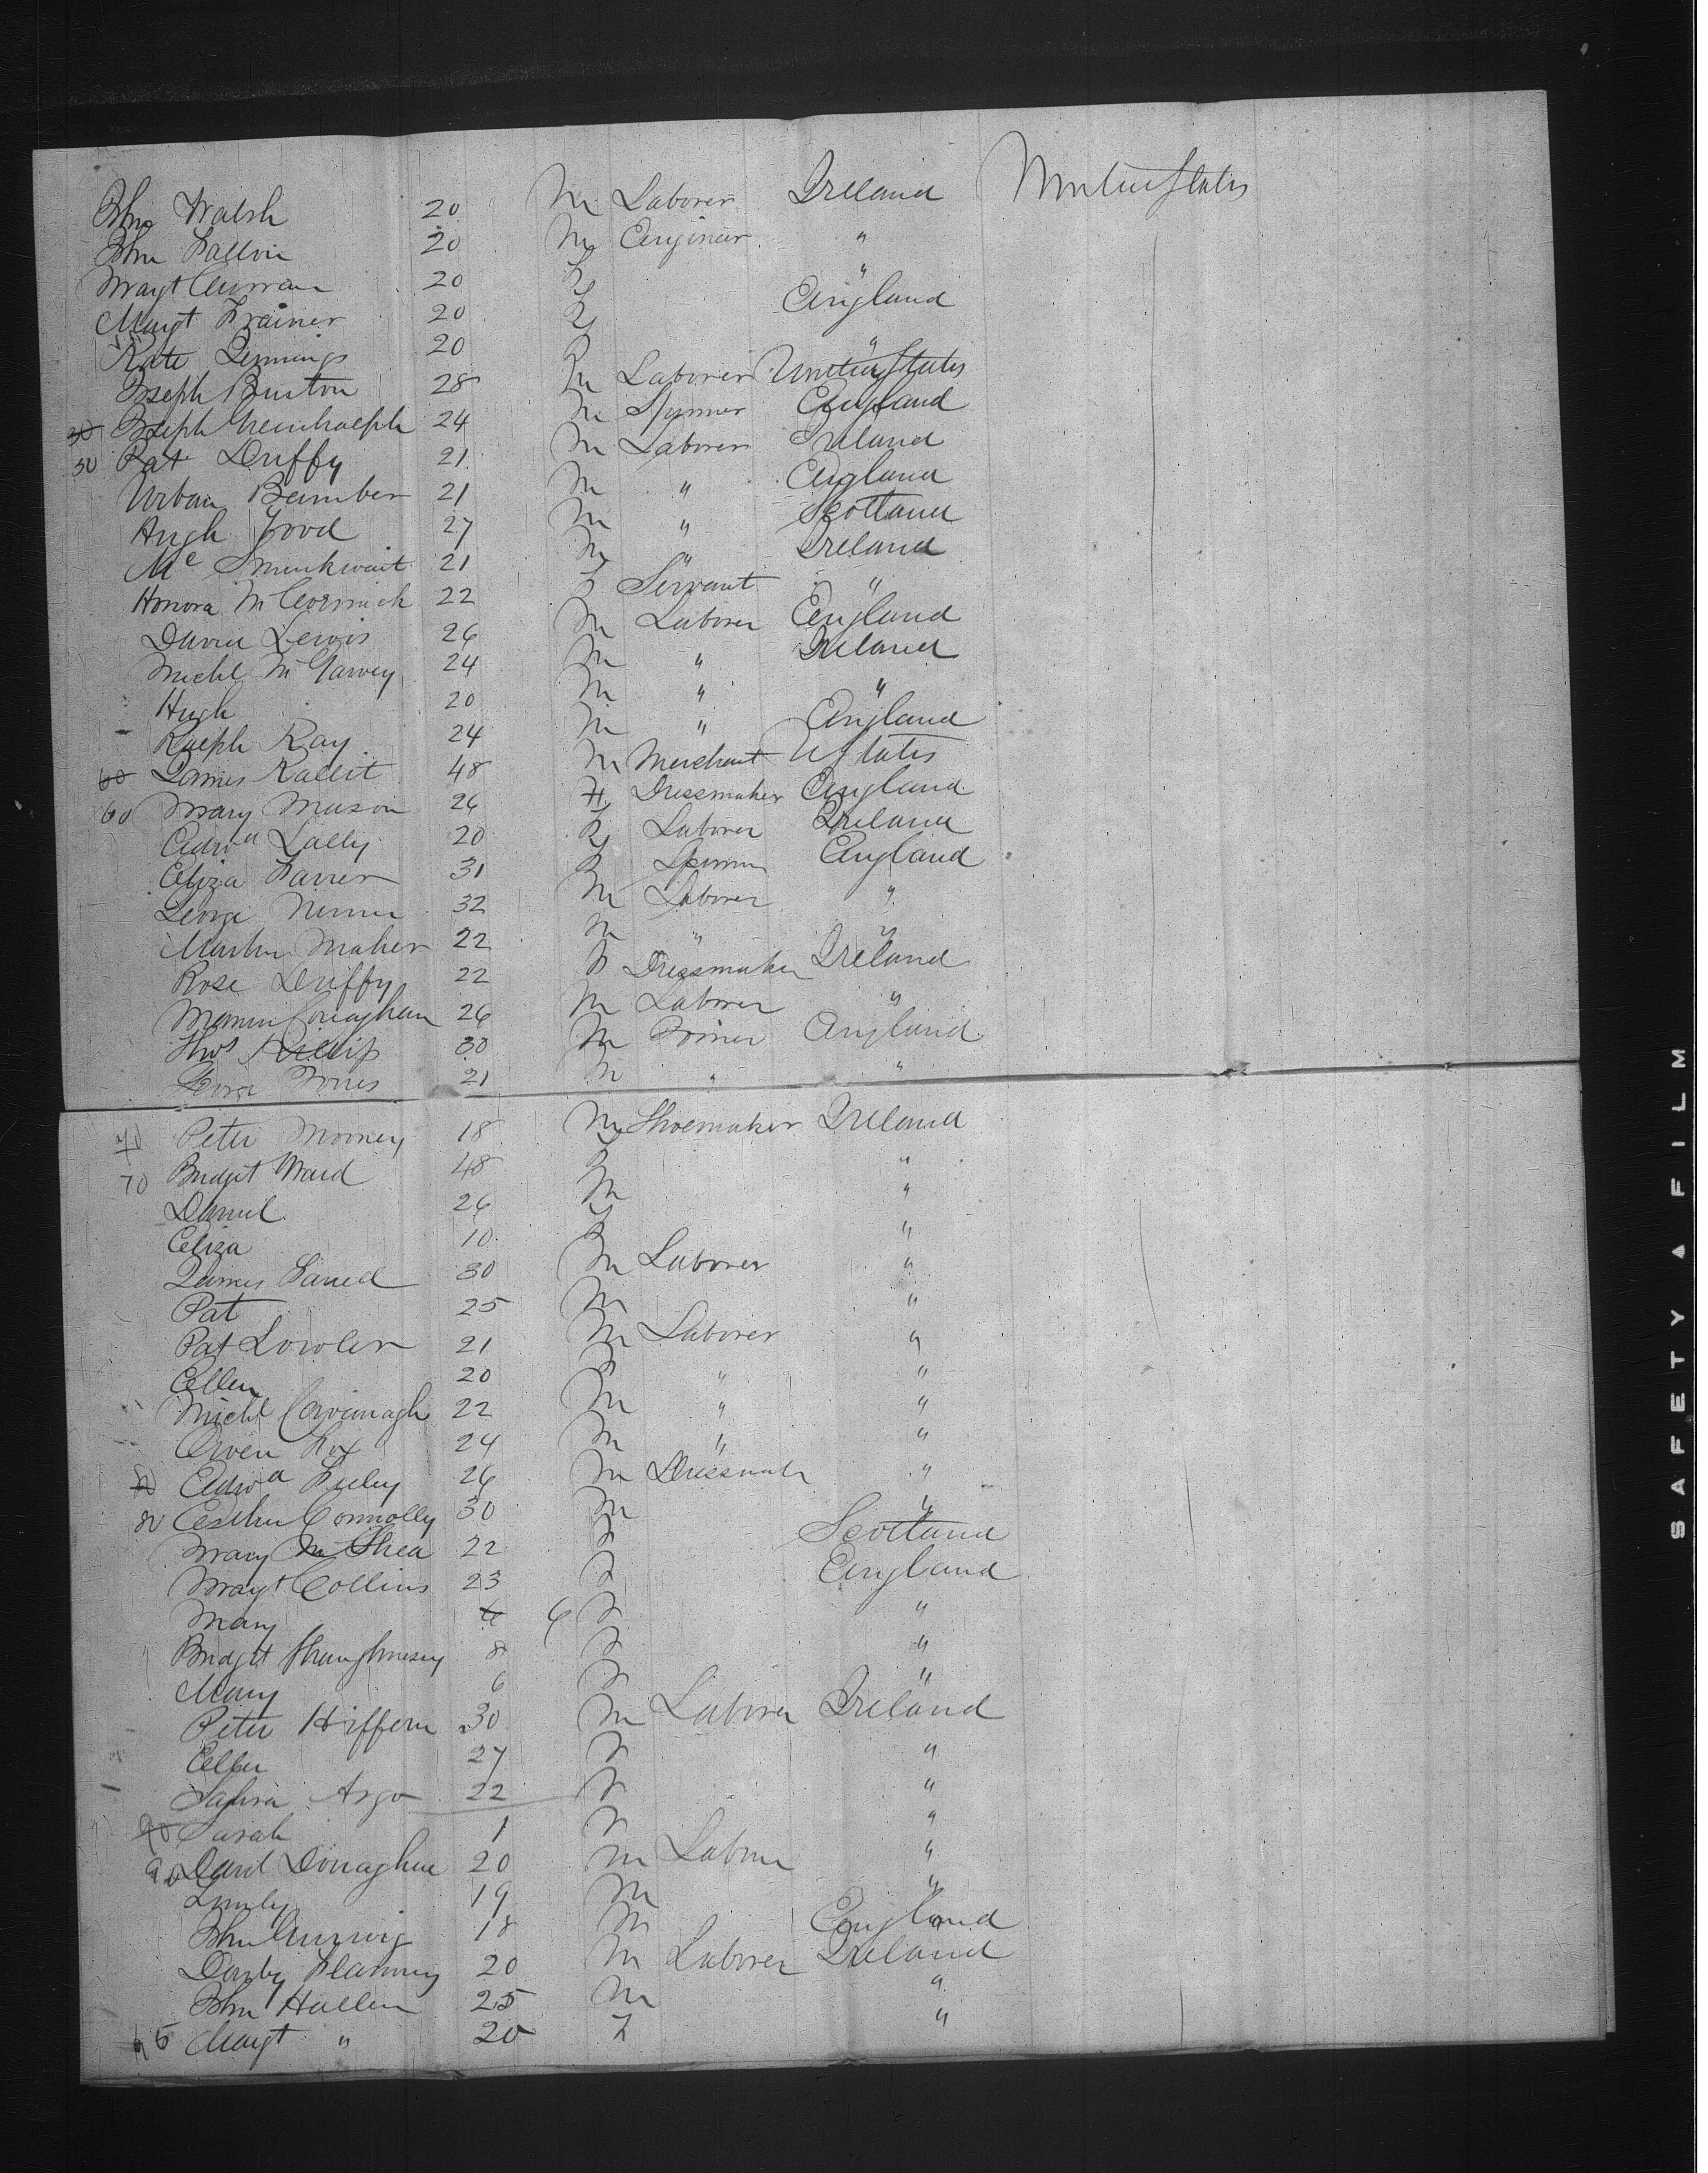 Jno Walsh 20 M Laborer Ireland United States
John Fallon 20 M Engineer "
Margt Curran 20 F "
Margt Trainer 20 F England
Kate Jennings 20 F "
Joseph Burton 28 M Laborer United States
50 Joseph 24 M Spinner England
50 Pat Duffy 21 M Laborer Ireland
Urban Bamber 21 M " England
Hugh Good 27 M " Scotland
Mc 21 M " Ireland
Honora McCormick 22 F Servant "
David Lewis 26 M Laborer England
Michl McGarvey 24 M " Ireland
Hugh 20 M " "
Ralph Ray 24 M " England
60 James 48 M Merchant U States
60 Mary Mason 26 F Dressmaker England
Edwd Lally 20 Laborer Ireland
Eliza Farrer 31 F England
George 32 M Laborer "
Martin Maher 22 M " "
Rose Duffy 22 F Dressmaker Ireland
Conaghan 26 M Laborer "
Thos 30 M Joiner England
George Jones 21 M " "
70 Peter Mooney 18 M Shoemaker Ireland
70 Bridget Ward 48 F "
Daniel 26 M "
Eliza 10 F "
James 30 M Laborer "
Pat 25 M "
Pat Lowler 21 M Laborer "
Ellen 20 F " "
Michl Cavanagh 22 M " "
Owen Fox 24 M " "
80 Edwd 26 M "
80 Esther Connolly 30 M "
Mary McShea 22 F Scotland
Margt Collins 23 F England
Mary 6 F "
Bridget Shaughnesey 8 F "
Mary 6 F "
Peter Hiffern 30 M Laborer Ireland
Ellen 27 F "
Argo 22 F "
90 Sarah 1 F "
90 Danl Donaghue 20 M Laborer "
19 M "
John 18 M England
Darby Flannery 20 M Laborer Ireland
John Hallen 25 M "
95 Margt " 20 F "
SAFETY A FILM